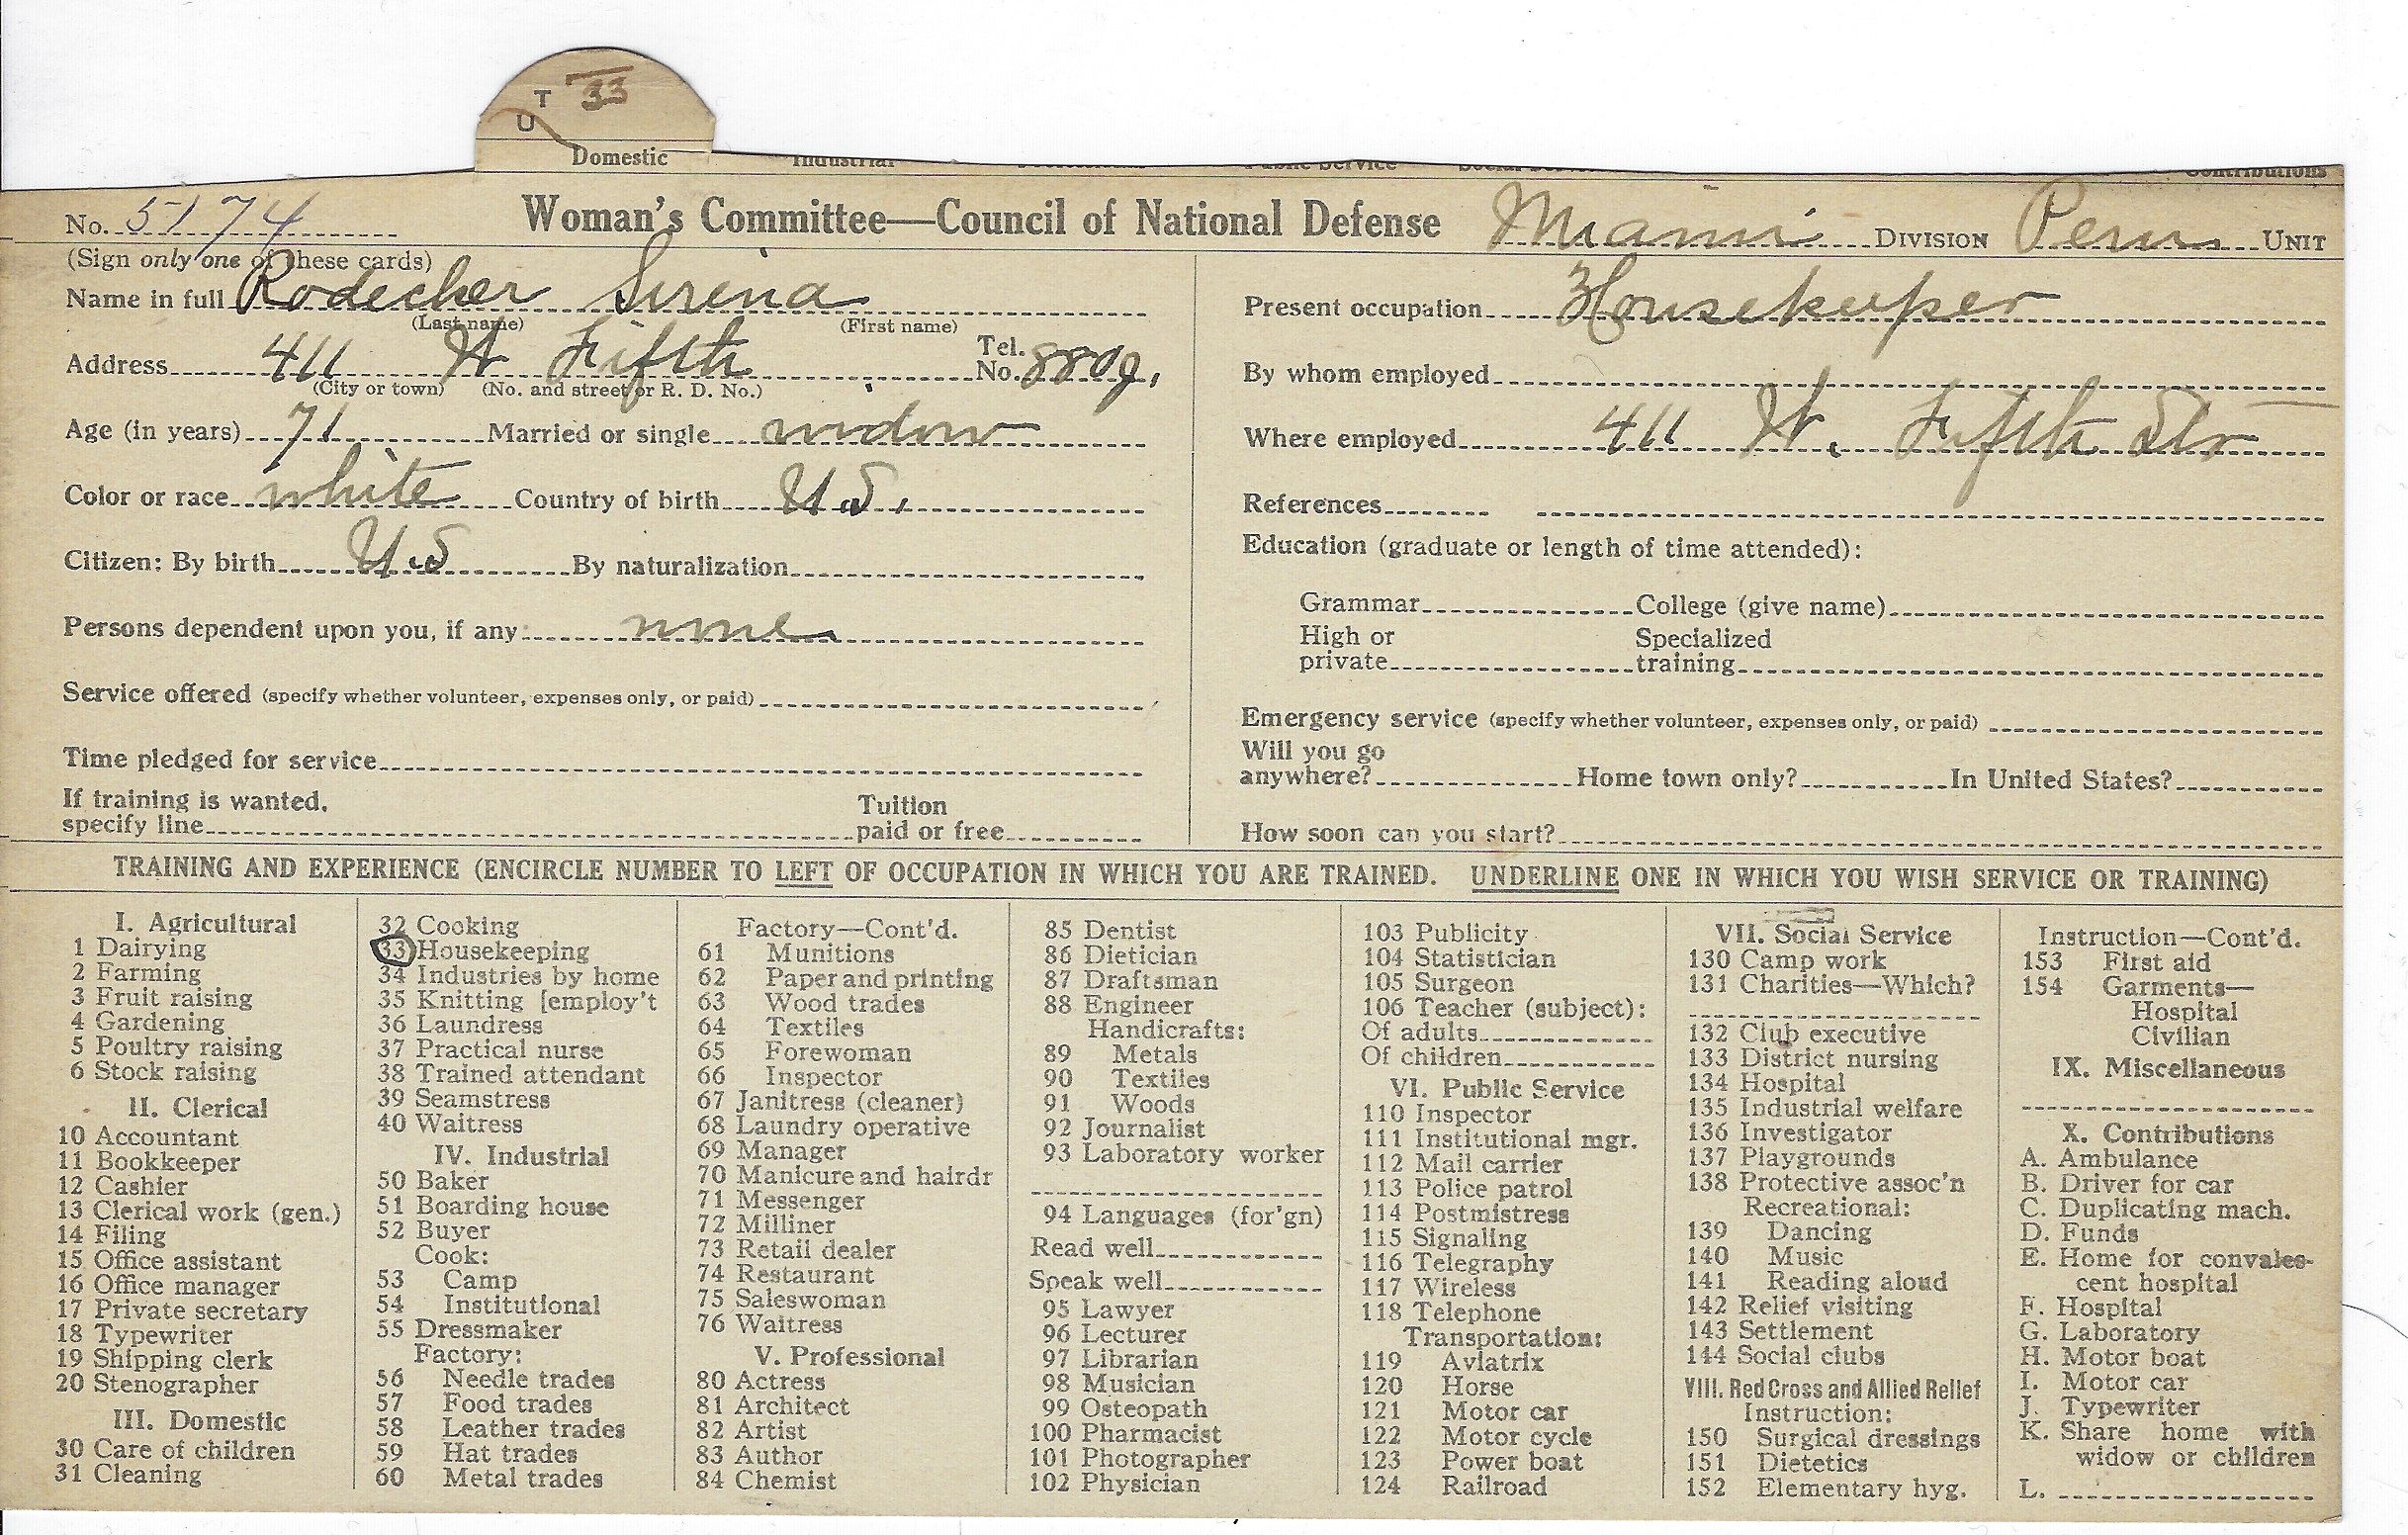 T 33
U
Domestic
Industrial
Public Service
Contributions
No. 5174
Woman's Committee—Council of National Defense Miami DIVISION Peru UNIT
(Sign only one of these cards)
Name in full Rodecker Serena
(Last name) (First name)
Address 411 W Fifth Tel. No. 880J.
(City or town) (No. and street or R. D. No.)
Age (in years) 71 Married or single widow
Color or race white Country of birth U.S.
Citizen: By birth U.S By naturalization
Persons dependent upon you, if any none
Service offered (specify whether volunteer, expenses only, or paid)
Time pledged for service
If training is wanted, specify line
Tuition paid or free
Present occupation Housekeeper
By whom employed
Where employed 411 W. Fifth Str
References
Education (graduate or length of time attended):
Grammar College (give name)
High or private Specialized training
Emergency service (specify whether volunteer, expenses only, or paid)
Will you go anywhere? Home town only? In United States?
How soon can you start?
TRAINING AND EXPERIENCE (ENCIRCLE NUMBER TO LEFT OF OCCUPATION IN WHICH YOU ARE TRAINED. UNDERLINE ONE IN WHICH YOU WISH SERVICE OR TRAINING)
I. Agricultural
1 Dairying
2 Farming
3 Fruit raising
4 Gardening
5 Poultry raising
6 Stock raising
II. Clerical
10 Accountant
11 Bookkeeper
12 Cashier
13 Clerical work (gen.)
14 Filing
15 Office assistant
16 Office manager
17 Private secretary
18 Typewriter
19 Shipping clerk
20 Stenographer
III. Domestic
30 Care of children
31 Cleaning
32 Cooking
33 Housekeeping
34 Industries by home
35 Knitting [employ't
36 Laundress
37 Practical nurse
38 Trained attendant
39 Seamstress
40 Waitress
IV. Industrial
50 Baker
51 Boarding house
52 Buyer
Cook:
53 Camp
54 Institutional
55 Dressmaker
Factory:
56 Needle trades
57 Food trades
58 Leather trades
59 Hat trades
60 Metal trades
Factory—Cont'd.
61 Munitions
62 Paper and printing
63 Wood trades
64 Textiles
65 Forewoman
66 Inspector
67 Janitress (cleaner)
68 Laundry operative
69 Manager
70 Manicure and hairdr
71 Messenger
72 Milliner
73 Retail dealer
74 Restaurant
75 Saleswoman
76 Waitress
V. Professional
80 Actress
81 Architect
82 Artist
83 Author
84 Chemist
85 Dentist
86 Dietician
87 Draftsman
88 Engineer
Handicrafts:
89 Metals
90 Textiles
91 Woods
92 Journalist
93 Laboratory worker
94 Languages (for'gn)
Read well
Speak well
95 Lawyer
96 Lecturer
97 Librarian
98 Musician
99 Osteopath
100 Pharmacist
101 Photographer
102 Physician
103 Publicity
104 Statistician
105 Surgeon
106 Teacher (subject):
Of adults
Of children
VI. Public Service
110 Inspector
111 Institutional mgr.
112 Mail carrier
113 Police patrol
114 Postmistress
115 Signaling
116 Telegraphy
117 Wireless
118 Telephone
Transportation:
119 Aviatrix
120 Horse
121 Motor car
122 Motor cycle
123 Power boat
124 Railroad
VII. Social Service
130 Camp work
131 Charities—Which?
132 Club executive
133 District nursing
134 Hospital
135 Industrial welfare
136 Investigator
137 Playgrounds
138 Protective assoc'n
Recreational:
139 Dancing
140 Music
141 Reading aloud
142 Relief visiting
143 Settlement
144 Social clubs
VIII. Red Cross and Allied Relief
Instruction:
150 Surgical dressings
151 Dietetics
152 Elementary hyg.
Instruction—Cont'd.
153 First aid
154 Garments—
Hospital
Civilian
IX. Miscellaneous
X. Contributions
A. Ambulance
B. Driver for car
C. Duplicating mach.
D. Funds
E. Home for convales-
cent hospital
F. Hospital
G. Laboratory
H. Motor boat
I. Motor car
J. Typewriter
K. Share home with
widow or children
L.